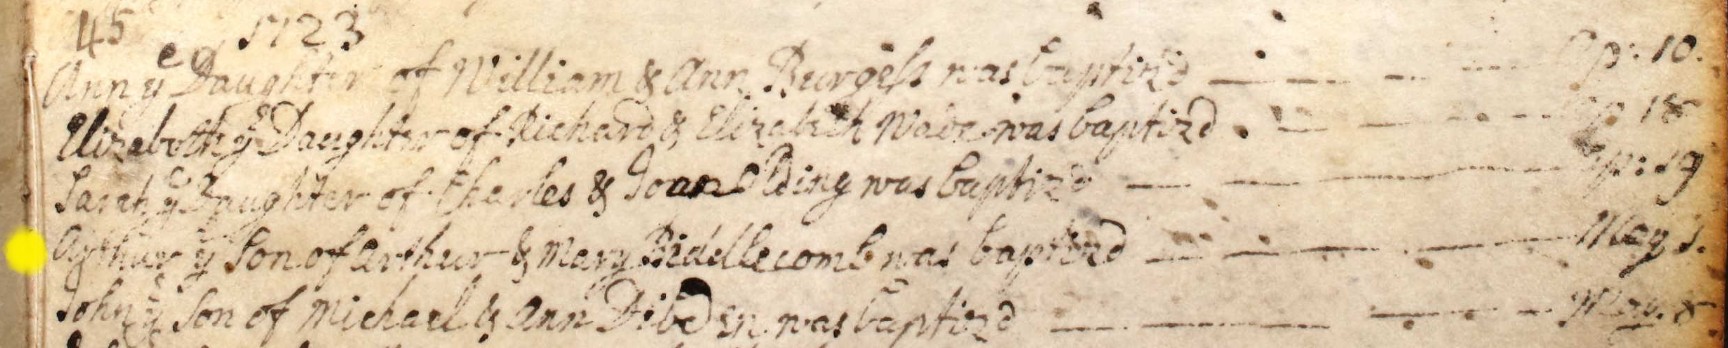 45 1723
Ann ye Daughter of William & Ann Burgess was baptiz'd Ap: 10.
Elizabeth ye Daughter of Richard & Elizabeth Wade was baptizd. Ap. 18
Sarah ye Daughter of Charles & Joan Olding was baptizd Ap: 19
Arthur ye Son of Arthur & Mary Biddlecomb was baptizd May 1.
John ye Son of Michael & Ann Dibden was baptizd May. 8